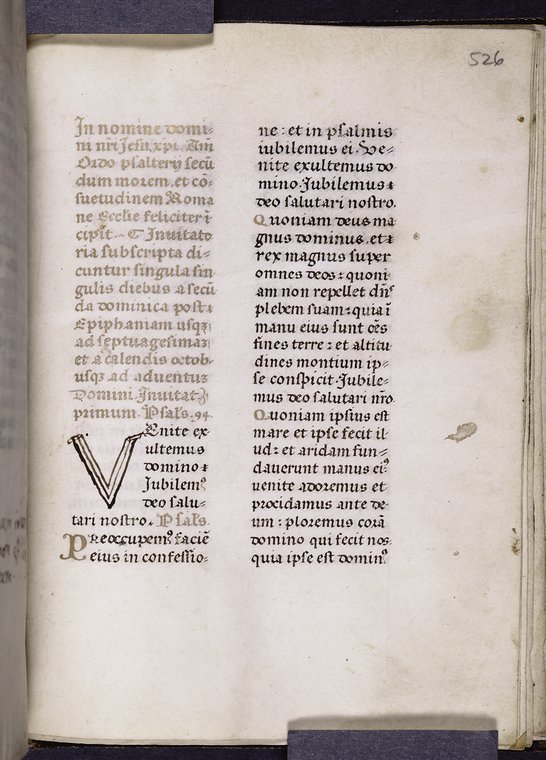 526
In nomine domi-
ni nr̄i Jesu xp̄i. Am̄
Ordo psalterij secū
dum morem et cō-
suetudinem Roma
ne Ecclie feliciter ī
cipit – ¶ Invitato
ria subscripta di-
cuntur singula sin
gulis diebus a secū
da dominica post
Epiphaniam usqꝫ
ad septuagesimaꝫ
et a calendis octob.
usqꝫ ad aduentuꝫ
Domini. Inuitat
primum. Psal's. 94.
VEnite ex
ultemus
domino ⁊
Jubilemꝰ
deo salu-
tari nostro. Psal's.
PReoccupemꝰ faciē
eius in confessio-
ne : et in psalmis
iubilemus ei. Ve-
nite exultemus do
mino. Jubilemus ⁊
deo salutari nostro.
Quoniam deus ma
gnus dominus. et ⁊
rex magnus super
omnes deos : quoni-
am non repellet dn̄s
plebem suam : quia ī
manu eius sunt oēs
fines terre : et altitu
dines montium ip-
se conspicit. Jubile-
mus deo salutari nr̄o.
Quoniam ipsius est
mare et ipse fecit il
ud : et aridam fun-
dauerunt manus eiꝰ
uenite adoremus et
procidamus ante de-
um : ploremus corā
domino qui fecit nos
quia ipse est dominꝰ